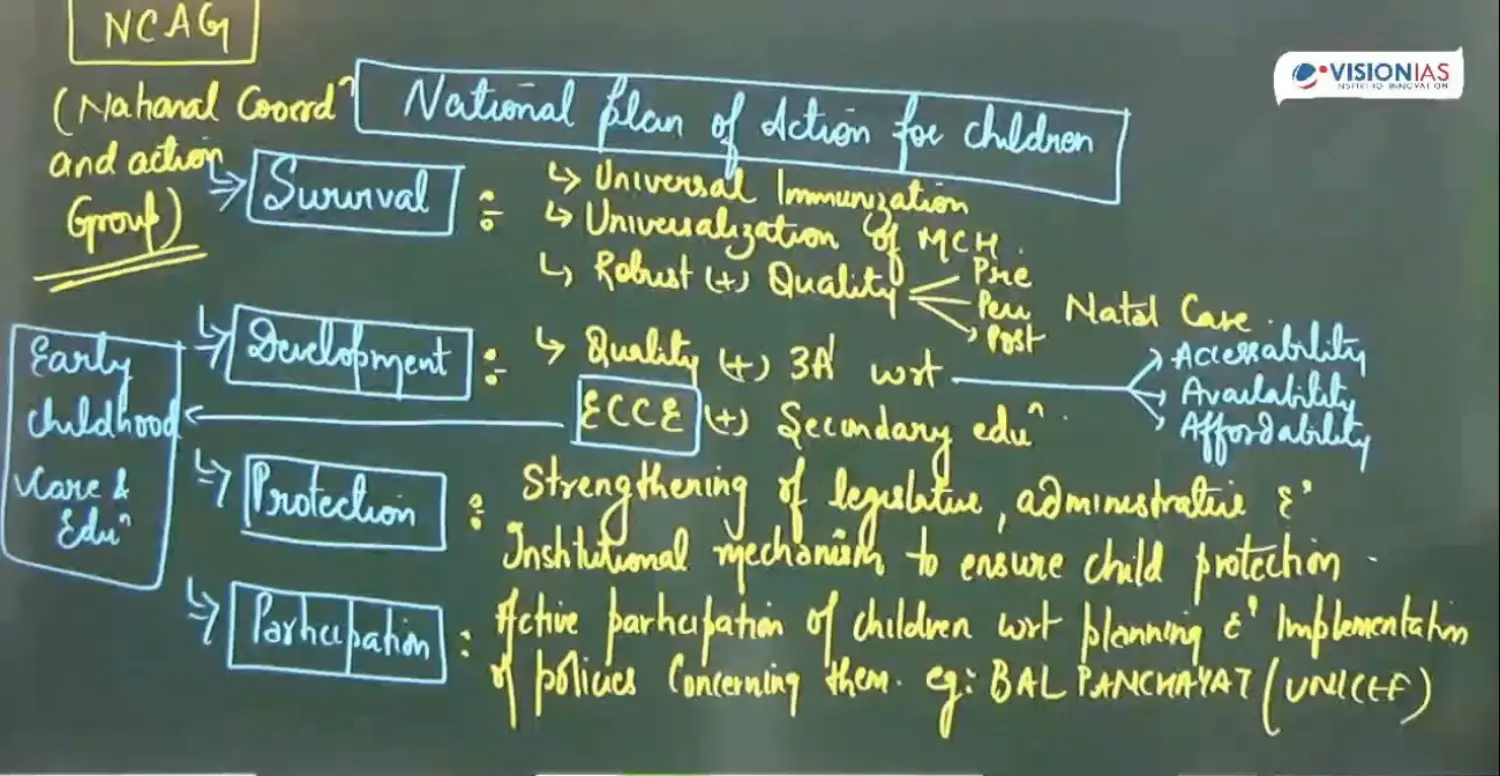 NCAG
(National Coordⁿ
and action
Group)
VISIONIAS
INSPIRING INNOVATION
National plan of Action for children
Survival :
↳ Universal Immunization
↳ Universalization of MCH.
↳ Robust (+) Quality
Pre
Peri
Post
Natal Care.
Development :
↳ Quality (+) 3A' wrt
Accessability
Availability
Affordability
ECCE (+) Secondary eduⁿ.
Early
childhood
Care &
Eduⁿ
Protection :
Strengthening of legislative, administrative &
Institutional mechanism to ensure child protection.
Participation :
Active participation of children wrt planning & Implementation
of policies Concerning them. eg: BAL PANCHAYAT (UNICEF)